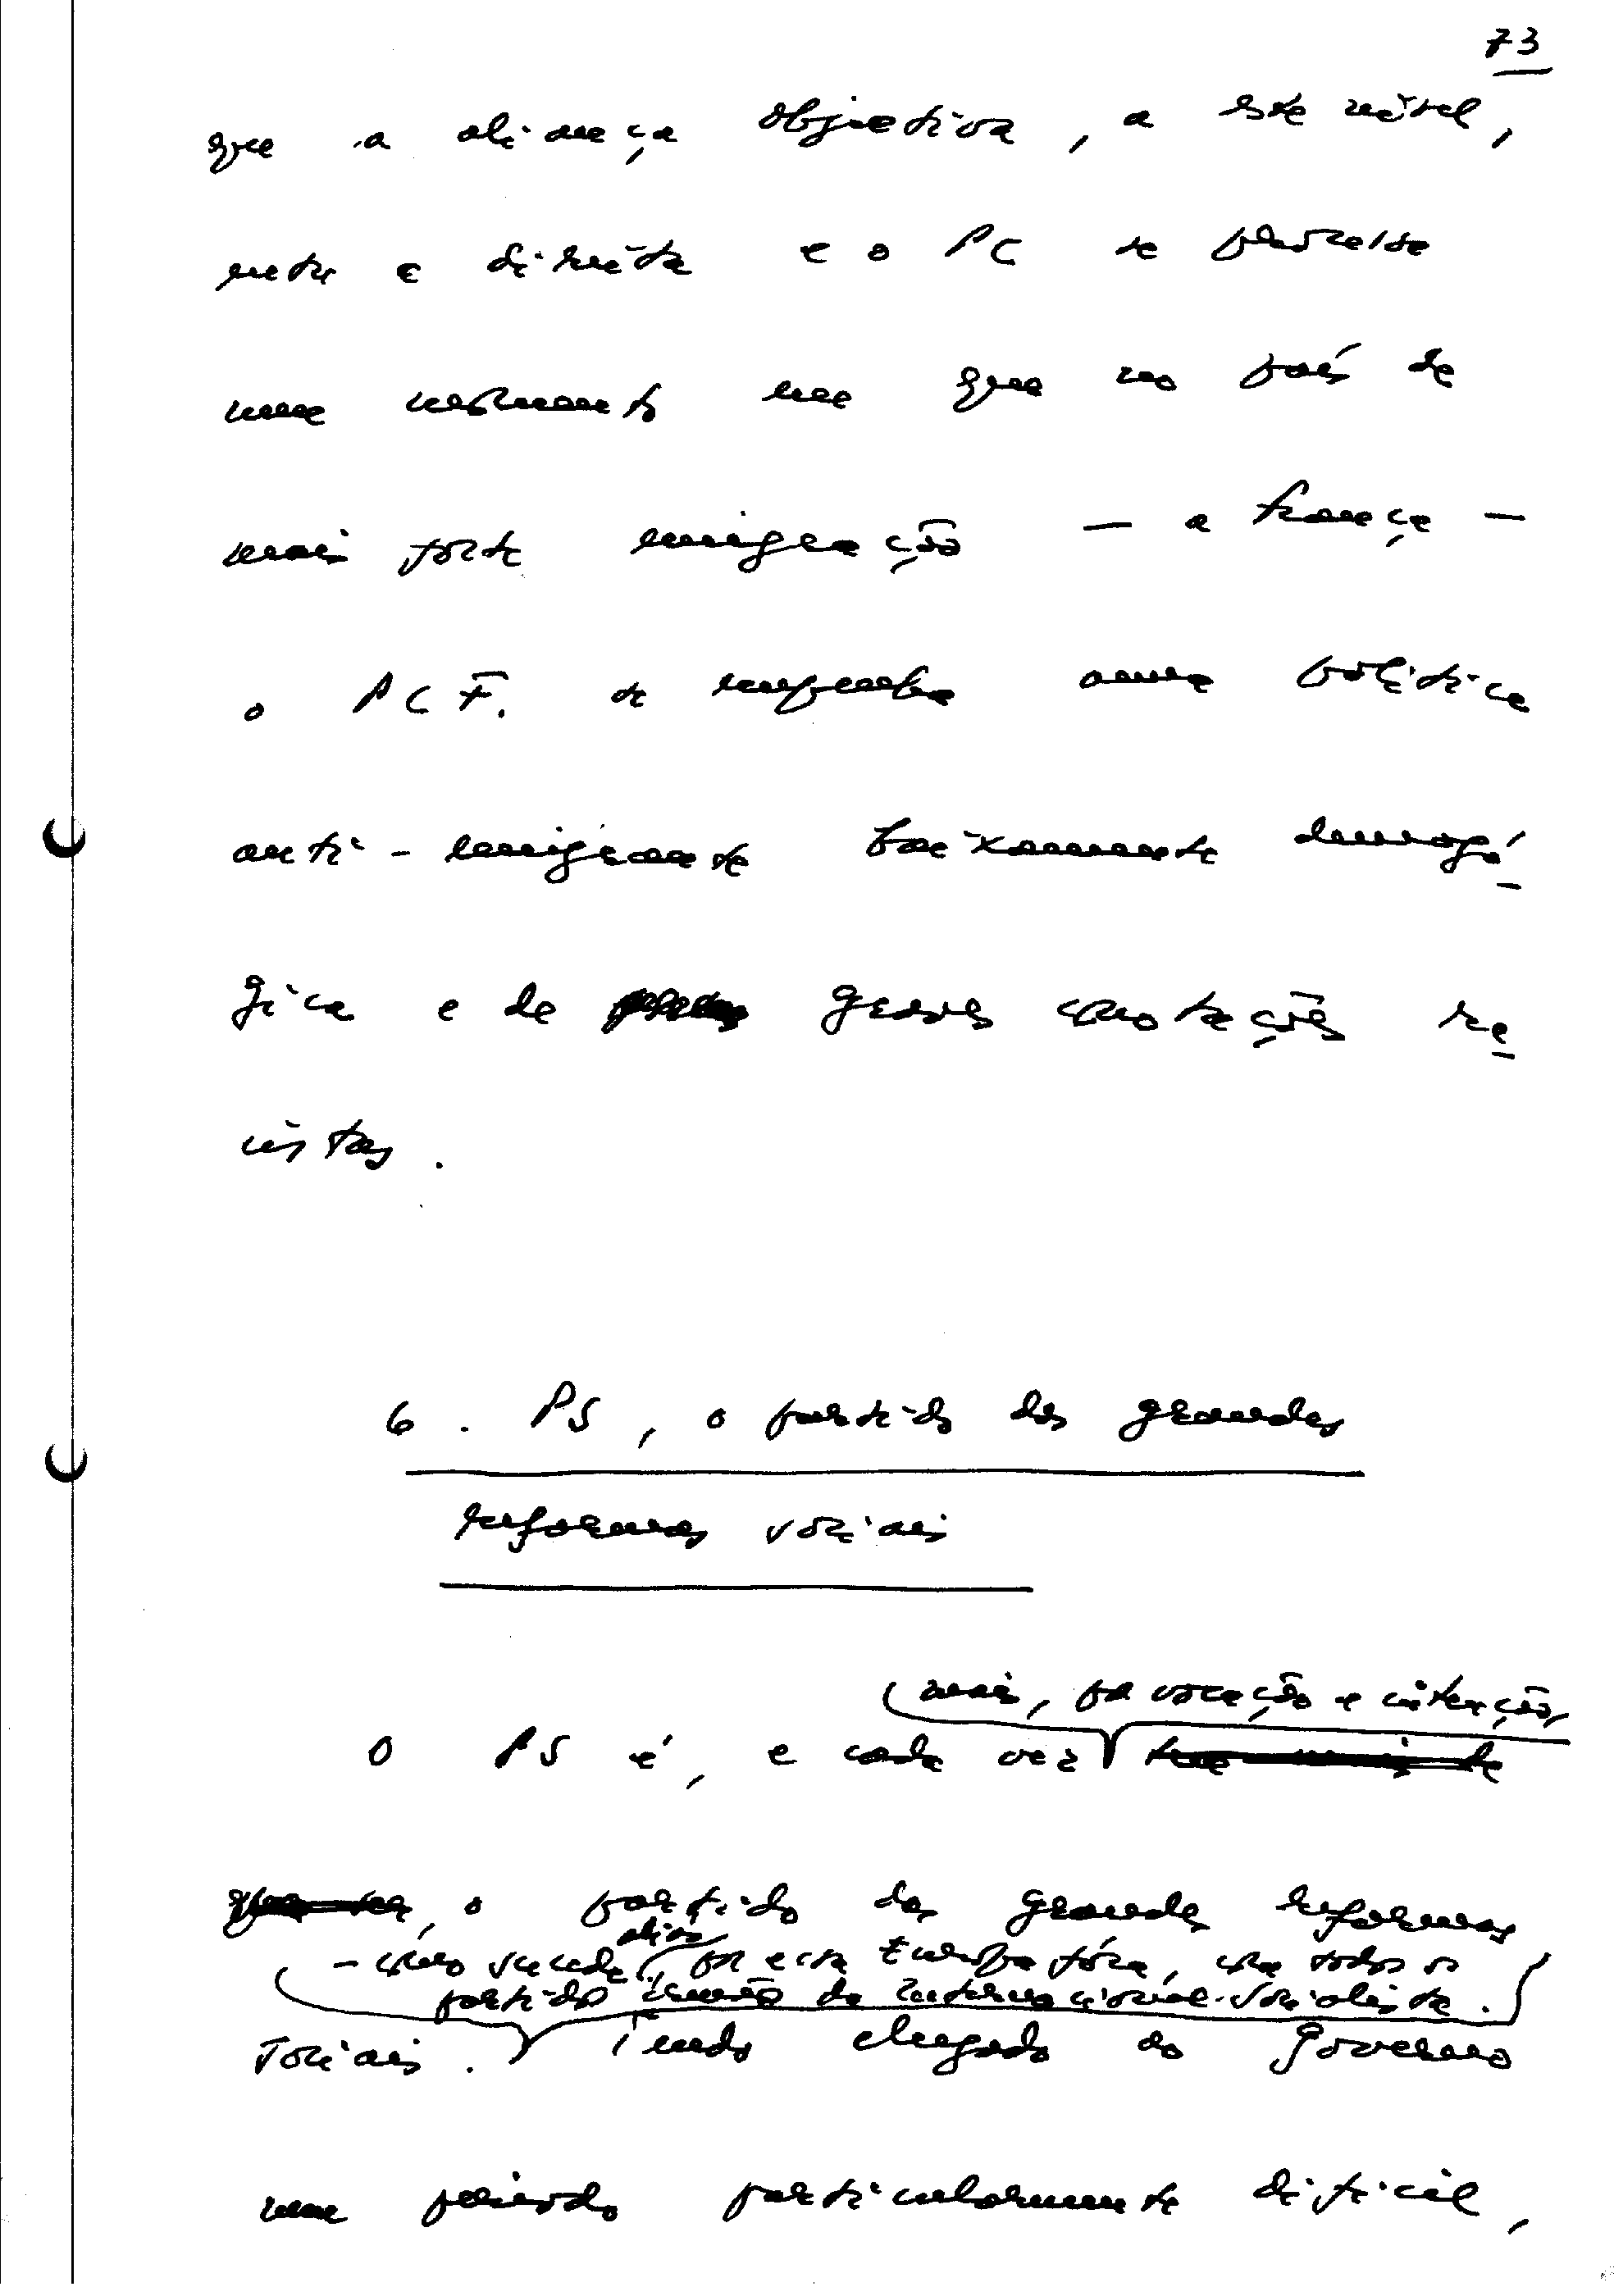 73
que a aliança objectiva, a este nível,
entre a direita e o PC se processe
num momento em que no país de
mais forte emigração — a França —
o PCF. se empenha numa política
anti-emigrante baixamente demagó-
gica e de graves conotações ra-
cistas.
6. PS, o partido das grandes
reformas sociais
mais, por vocação e intenção,
O PS é, e cada vez
, o partido das grandes reformas
aliás
– como sucede, por essa Europa fora, com todos os
partidos irmãos da Internacional Socialista.
sociais. Tendo chegado ao Governo
num período particularmente difícil,